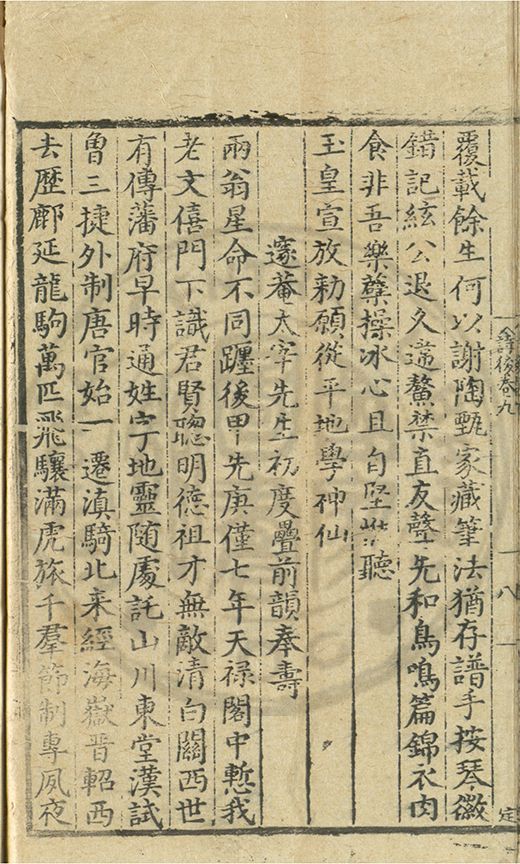 詩後卷九
八
定
覆載餘生何以謝陶甄家藏筆法猶存譜手按琴徽
錯記絃公退久違鰲禁直友聲先和鳥鳴篇錦衣肉
食非吾樂蘗操冰心且自堅恭聽
玉皇宣放勑願從平地學神仙
邃菴太宰先生初度疊前韻奉壽
兩翁星命不同躔後甲先庚僅七年天禄閣中慙我
老文僖門下識君賢聰明德祖才無敵清白關西世
有傳藩府早時通姓字地靈隨處託山川東堂漢試
曾三捷外制唐官始一遷滇騎北来經海嶽晋軺西
去歴鄜延龍駒萬匹飛驤滿虎旅千羣節制專夙夜